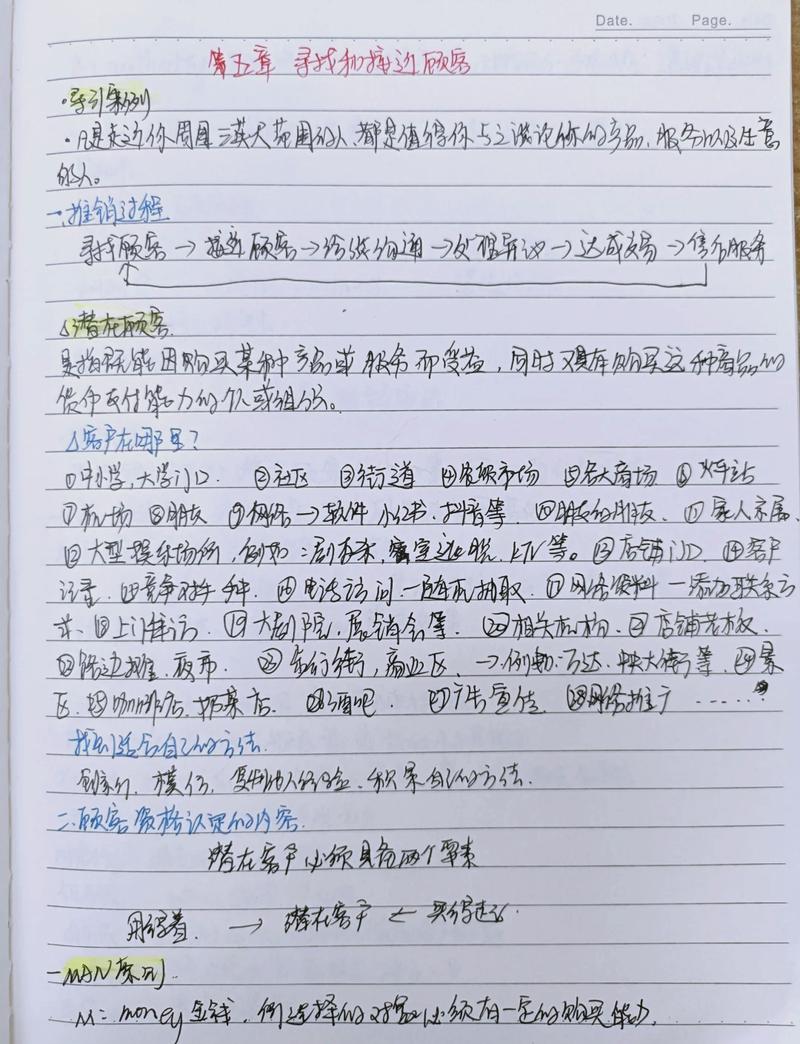 Date. Page.
第五章 寻找和接近顾客
·导引案例
·凡是走近你周围三英尺范围的人、都是值得你与之谈论你的产品、服务以及生意
的人。
一.推销过程
寻找顾客→接近顾客→洽谈沟通→处理异议→达成交易→售后服务
△潜在顾客.
是指既能因购买某种产品或服务而受益，同时又具有购买这种商品的
货币支付能力的个人或组织。
△客户在哪里？
①中小学，大学门口. ②社区 ③街道 ④农贸市场 ⑤各大商场 ⑥火车站
⑦机场 ⑧朋友 ⑨网络→软件 小红书.抖音等. ⑩朋友的朋友. ⑪家人亲属.
⑫大型娱乐场所，例如：剧本杀，密室逃脱.KTV等。⑬店铺门口. ⑭客户
⑮竞争对手 ⑯电话访问.一随机抽取. ⑰网络资料一添加联系方
式. ⑱上门拜访. ⑲大剧院，展销会等. ⑳相关机构. ㉑店铺老板.
㉒路边 夜市. ㉓步行街，商业区. →例 万达.中央大街等. ㉔景
区. ㉕咖啡店.奶茶店. ㉖酒吧. ㉗广告宣传. ㉘网络推广 ……
找到适合自己的方法.
模仿，复制他人的经验.积累自己的方法.
二.顾客资格认定的内容.
潜在客户必须具备两个要素
用得着. → 潜在客户 ← 买得起.
一MAN原则.
M：money金钱. 所选择的对象必须有一定的购买能力.